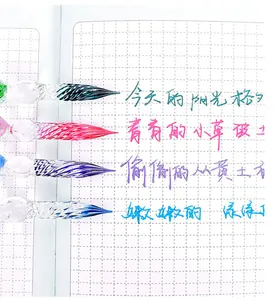 今天的阳光格外
青青的小草破土
偷偷的从黄土
嫩嫩的 绿绿